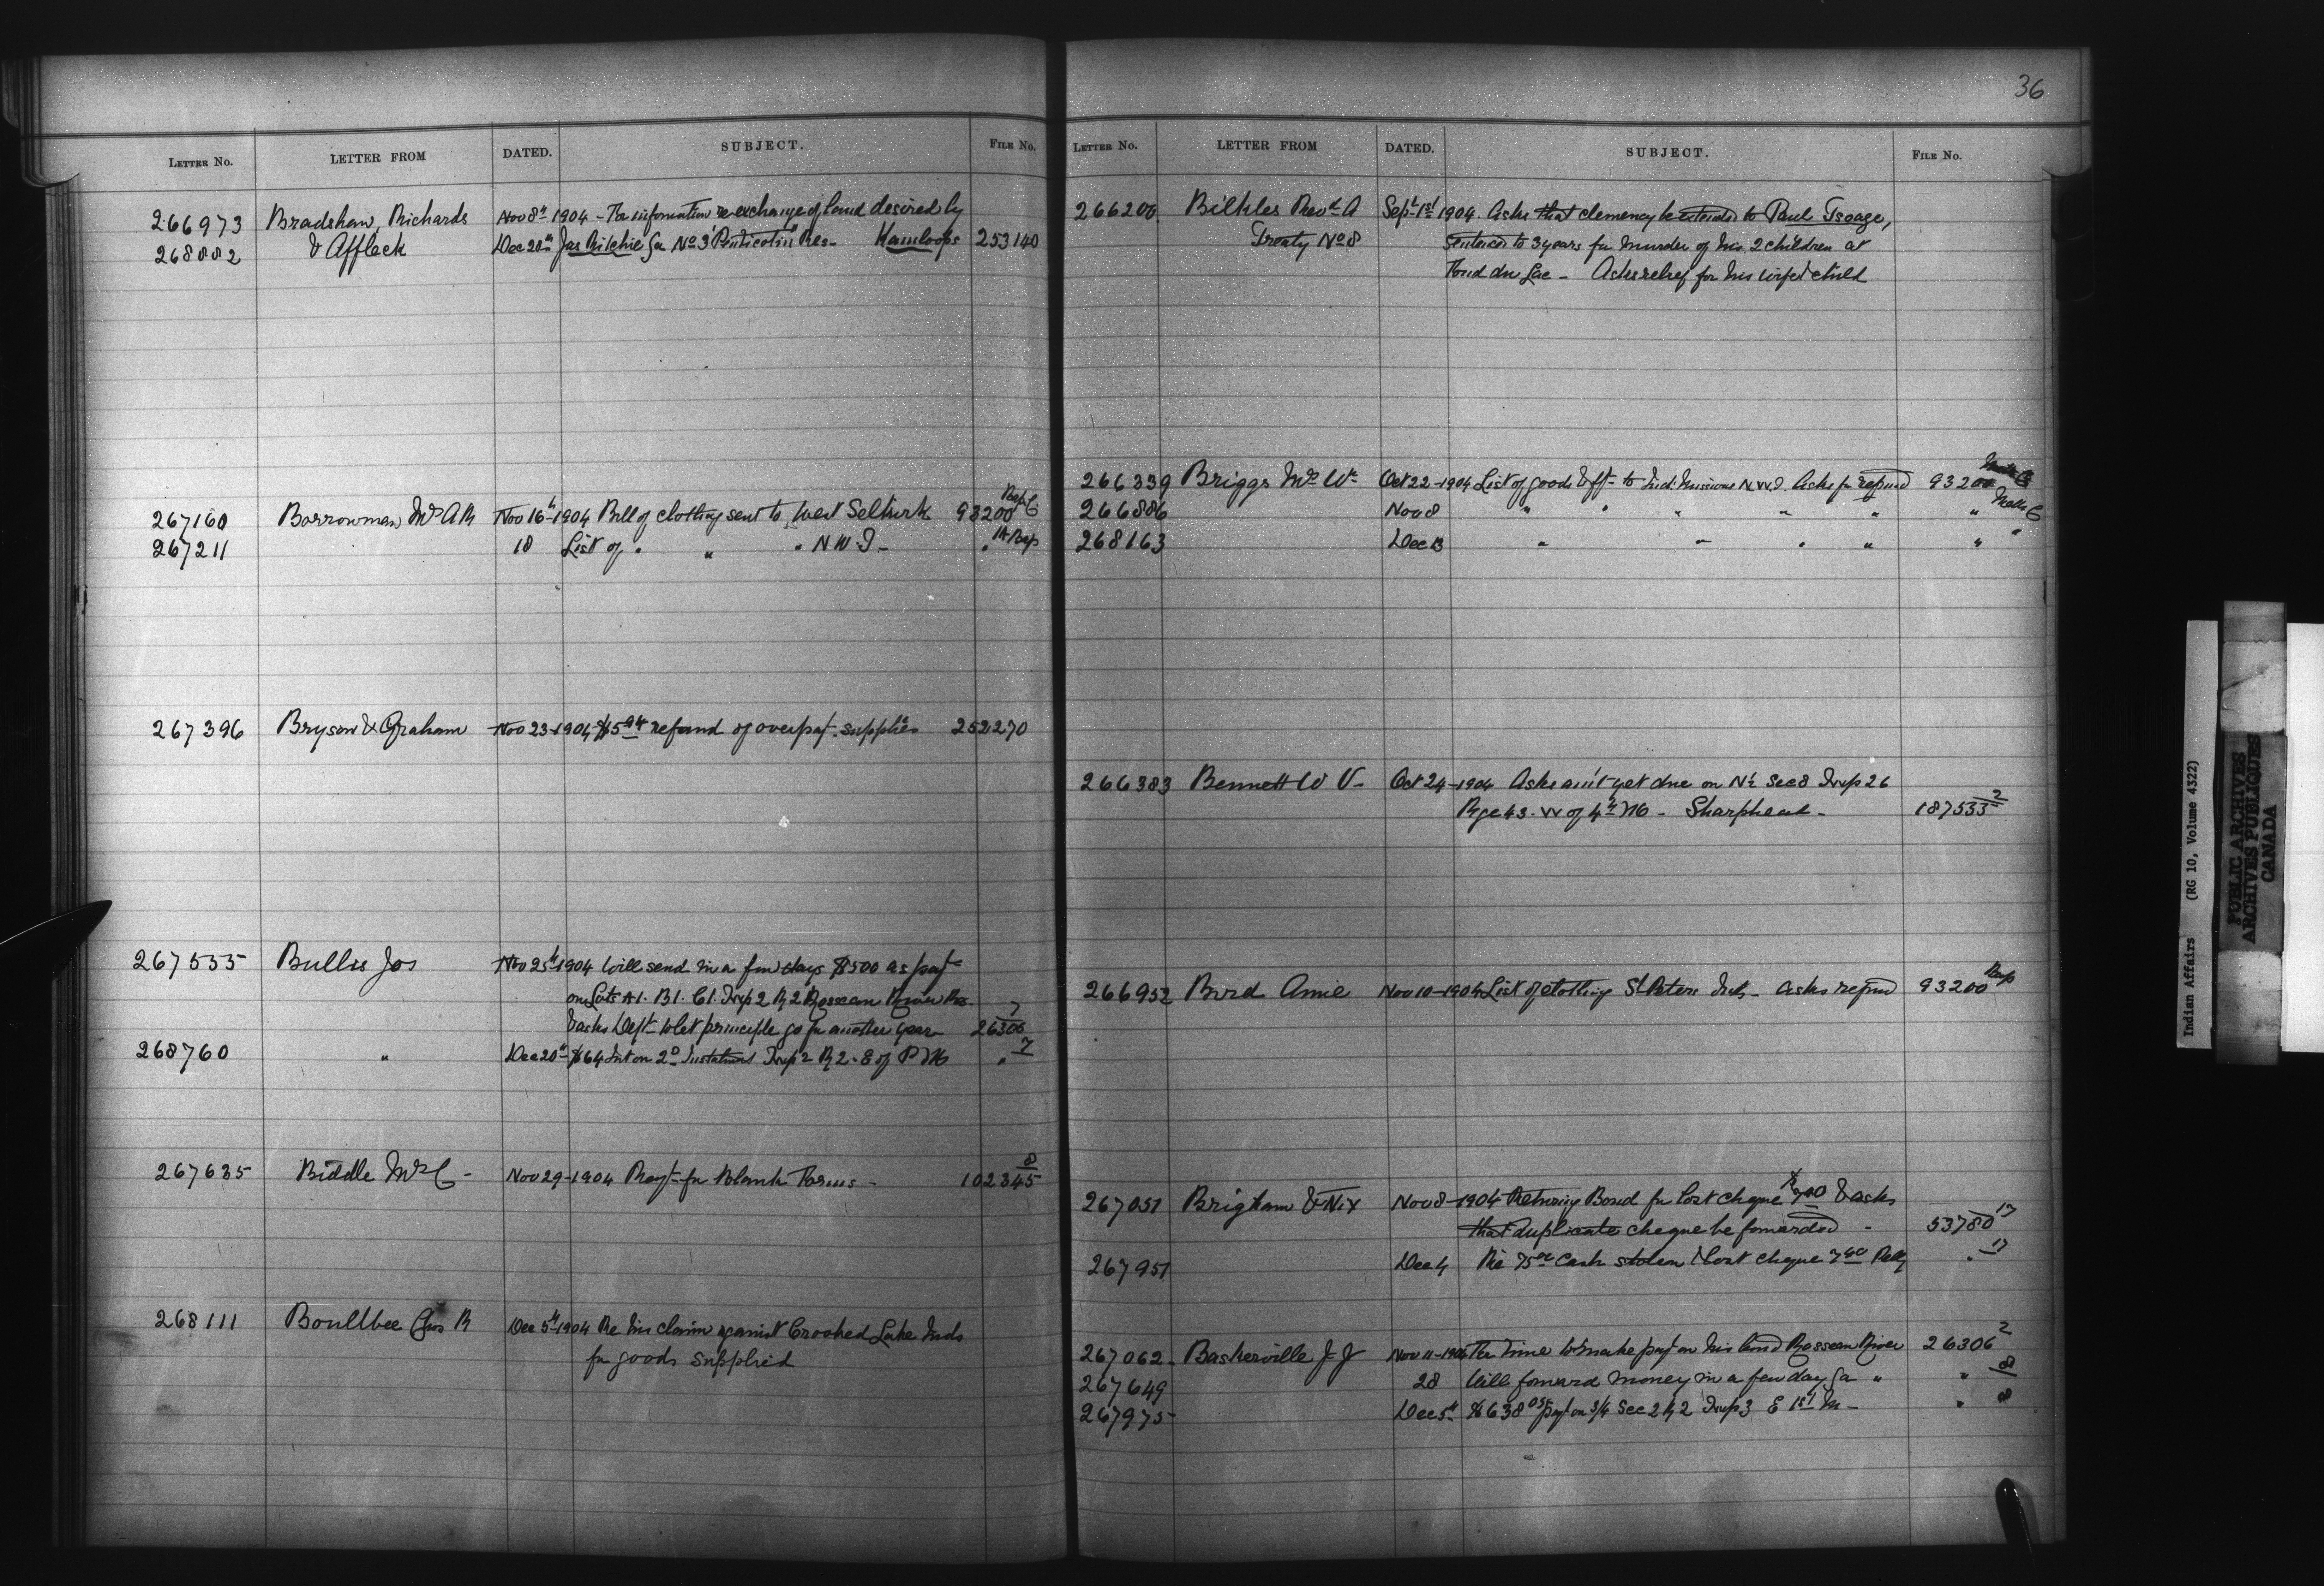 36
LETTER No. LETTER FROM DATED. SUBJECT. FILE No.
266973 Bradshaw, Richards Nov 8th 1904 - For information re exchange of land desired by
268882 & Affleck Dec 20th Jas Ritchie for No 3 "Penticoten" Res - Kamloops 253140
267160 Borrowman Mrs A R Nov 16th 1904 Bill of clothing sent to West Selkirk 93200
267211 18 List of " " " N W T -
267396 Bryson & Graham Nov 23 - 1904 refund of overpayt. supplies 252270
267555 Bullis Jos Nov 25th 1904 Will send in a few days $500 as payt
on Lots A1. B1. C1. Twp 2 R 2 Roseau River Res
& asks Dept to let principle go for another year 26306 7
268760 " Dec 20th $64 Int on 2D Instalment Twp 2 R 2 - E of P M " 7
267635 Biddle Mrs C - Nov 29 - 1904 Payt for Blank Forms - 102345 8
268111 Boultbee Geo R Dec 5th 1904 Re his claim against Crooked Lake Inds
for goods supplied
LETTER No. LETTER FROM DATED. SUBJECT. FILE No.
266200 Revd A Sept 1st 1904. Asks that clemency be extended to Paul
Treaty No 8 sentenced to 3 years for murder of his 2 children at
Fond du Lac - Asks relief for his wife & child
266339 Briggs Mr Wm Oct 22 - 1904 List of goods to Ind. Missions N.W.T. Asks for refund 93200
266886 Nov 8 " " " " " "
268163 Dec 13 " " " " "
266383 Bennett W V - Oct 24 - 1904 Asks am't yet due on N½ Sec 8 Twp 26
Rge 43 - W of 4th M - Sharphead - 187533 2
266952 Bird Amie Nov 10 - 1904 List of clothing St Peters Inds - asks refund 93200
267051 Brigham & Nix Nov 8 - 1904 Returning Bond for lost cheque & asks
that duplicate cheque be forwarded - 53780 17
267951 Dec 4 Re 75 cash stolen & lost cheque " 17
267062 Baskerville J J Nov 11 - 1904 For time to make payt on his land Roseau River 26306 2
267649 28 Will forward money in a few days " " 8
267975 Dec 5th $638 payt on 3/4 Sec 2 R 2 Twp 3 E 1st M - " 8
Indian Affairs (RG 10, Volume 4322)
PUBLIC ARCHIVES
ARCHIVES PUBLIQUES
CANADA